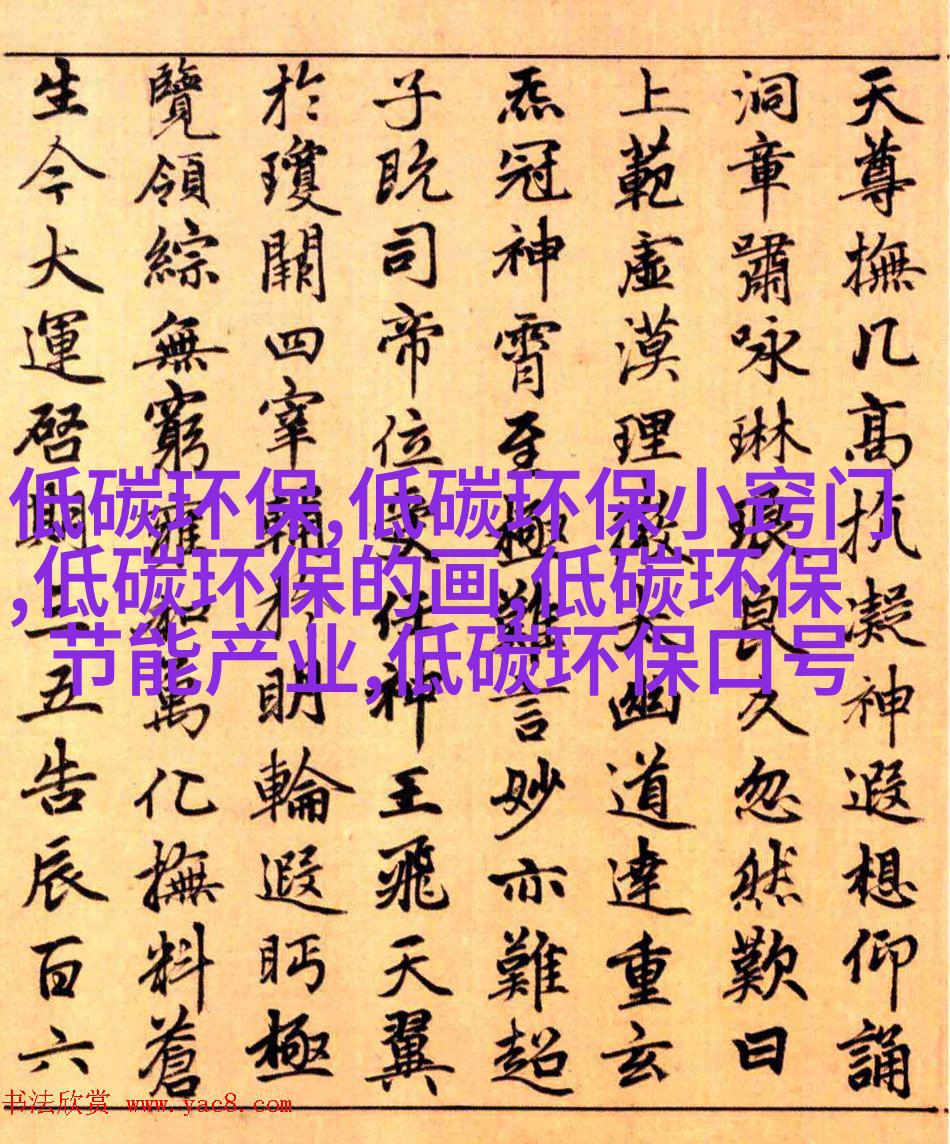 天尊撫几高抗凝神遐想仰誦
洞章嘯咏琳琅良久忽然歎曰
上範虛漠理微大幽道達重玄
炁冠神霄至極難言妙亦難超
子既司帝位受任神王飛天翼
於瓊闕四宰輔於明輪遐眄極
覽領綜無窮雍和萬化撫料蒼
生今大運啓期三五告辰百六
低碳环保,低碳环保小窍门
,低碳环保的画,低碳环保
节能产业,低碳环保口号
书法欣赏 www.yac8.com